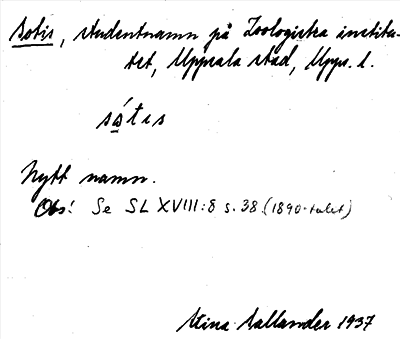 Sotis, studentnamn på Zoologiska institu-
tet, Uppsala stad, Upps. l.
sátis
Nytt namn.
Obs! Se SL XVIII:8 s. 38 (1890-talet)
Stina Sallander 1937